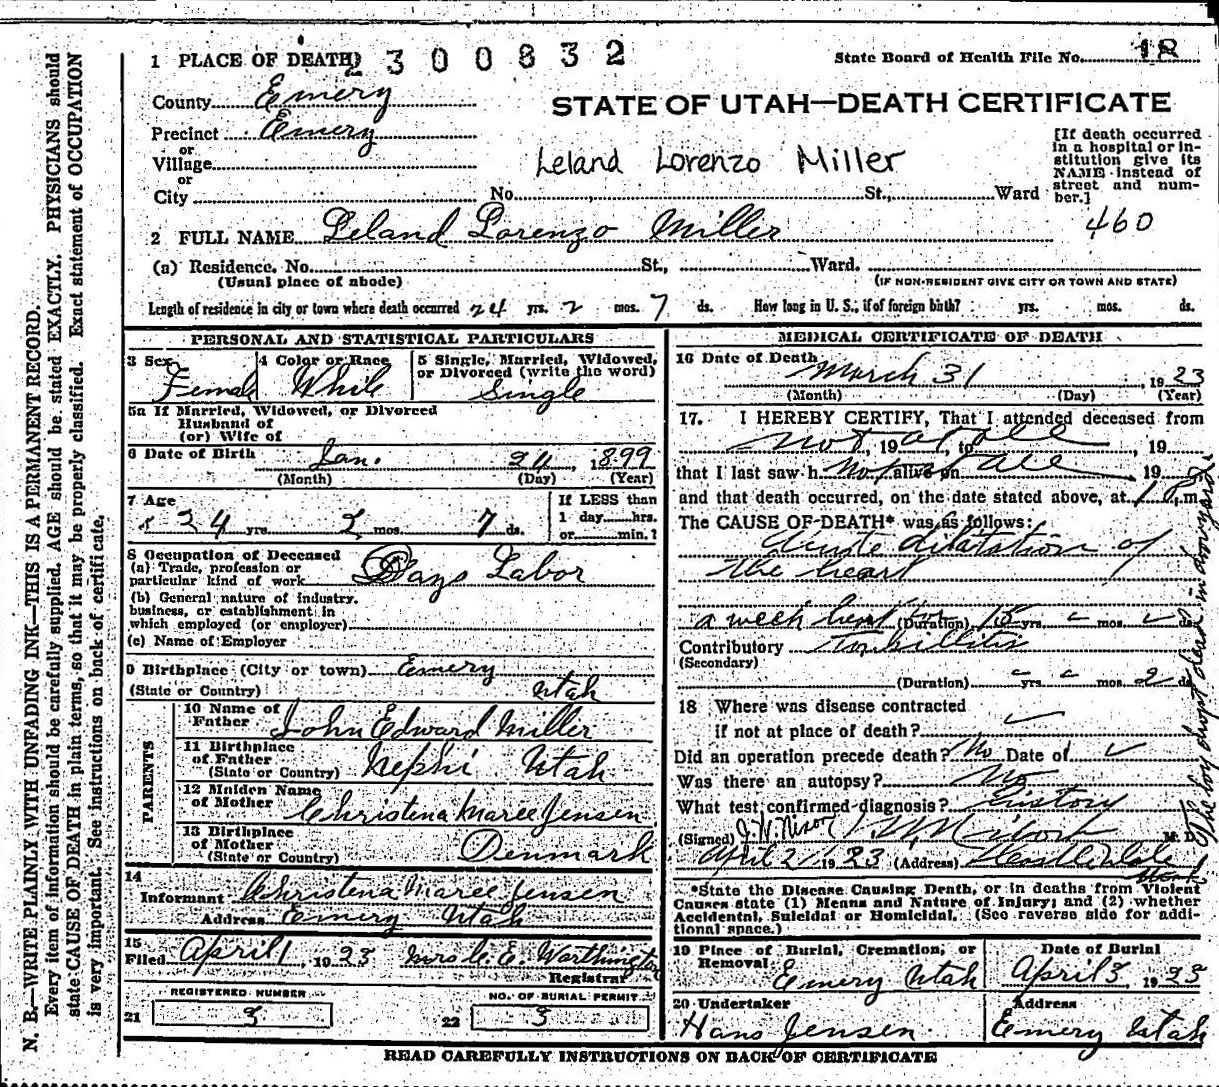 1 PLACE OF DEATH
2300832
State Board of Health File No. 18
County Emery
STATE OF UTAH—DEATH CERTIFICATE
Precinct Emery
or
Village
or
City No. St., Ward
Leland Lorenzo Miller
[If death occurred
in a hospital or in-
stitution give its
NAME instead of
street and num-
ber.]
460
2 FULL NAME Leland Lorenzo Miller
(a) Residence. No. St., Ward.
(Usual place of abode) (IF NON-RESIDENT GIVE CITY OR TOWN AND STATE)
Length of residence in city or town where death occurred 24 yrs. 2 mos. 7 ds. How long in U. S., if of foreign birth? yrs. mos. ds.
PERSONAL AND STATISTICAL PARTICULARS
3 Sex 4 Color or Race 5 Single, Married, Widowed,
or Divorced (write the word)
Female White Single
5a If Married, Widowed, or Divorced
Husband of
(or) Wife of
6 Date of Birth Jan. 24, 1899
(Month) (Day) (Year)
7 Age If LESS than
24 yrs. 2 mos. 7 ds. 1 day hrs.
or min.?
8 Occupation of Deceased
(a) Trade, profession or
particular kind of work Days Labor
(b) General nature of industry,
business, or establishment in
which employed (or employer)
(c) Name of Employer
9 Birthplace (City or town) Emery
(State or Country) Utah
PARENTS
10 Name of
Father John Edward Miller
11 Birthplace
of Father
(State or Country) Nephi Utah
12 Maiden Name
of Mother Christena Maree Jensen
13 Birthplace
of Mother
(State or Country) Denmark
14
Informant Christena Maree Jensen
Address Emery Utah
15
Filed April 1, 1923 Mrs C. E. Worthington
Registrar
REGISTERED NUMBER NO. OF BURIAL PERMIT
21 3 22 3
MEDICAL CERTIFICATE OF DEATH
16 Date of Death
March 31, 1923
(Month) (Day) (Year)
17. I HEREBY CERTIFY, That I attended deceased from
not at all, 19 , to , 19
that I last saw h not at all alive on 19
and that death occurred, on the date stated above, at 1 P. m.
The CAUSE OF DEATH* was as follows:
Acute dilatation of
the heart
a week heart for (Duration) 15 yrs. mos. ds.
Contributory Tonsillitis
(Secondary)
(Duration) yrs. mos. 2 ds.
18 Where was disease contracted
if not at place of death?
Did an operation precede death? No Date of
Was there an autopsy? No
What test confirmed diagnosis? History
(Signed) J. W. Nixon M. D.
April 21 1923 (Address) Castle Dale
Utah
The boy dropt dead in dooryard.
*State the Disease Causing Death, or in deaths from Violent
Causes state (1) Means and Nature of Injury; and (2) whether
Accidental, Suicidal or Homicidal. (See reverse side for addi-
tional space.)
19 Place of Burial, Cremation, or
Removal Date of Burial
Emery Utah April 3, 1923
20 Undertaker Address
Hans Jensen. Emery Utah
READ CAREFULLY INSTRUCTIONS ON BACK OF CERTIFICATE
N. B.—WRITE PLAINLY WITH UNFADING INK—THIS IS A PERMANENT RECORD.
Every item of information should be carefully supplied. AGE should be stated EXACTLY. PHYSICIANS should
state CAUSE OF DEATH in plain terms, so that it may be properly classified. Exact statement of OCCUPATION
is very important. See instructions on back of certificate.